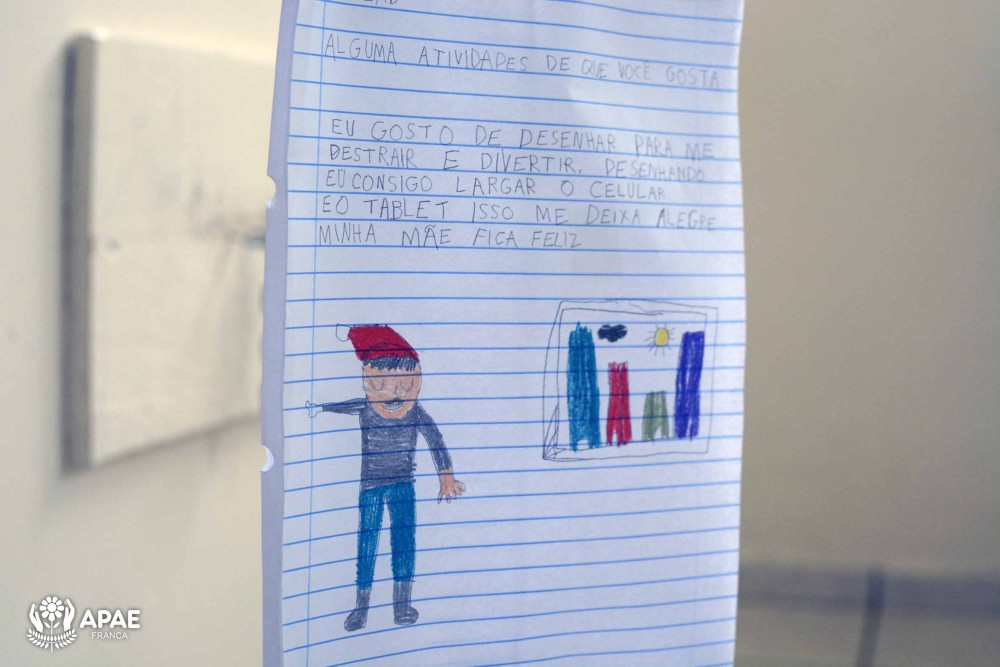 ALGUMA ATIVIDADES DE QUE VOCÊ GOSTA
EU GOSTO DE DESENHAR PARA ME
DESTRAIR E DIVERTIR. DESENHANDO
EU CONSIGO LARGAR O CELULAR
E O TABLET ISSO ME DEIXA ALEGRE
MINHA MÃE FICA FELIZ
APAE
FRANCA